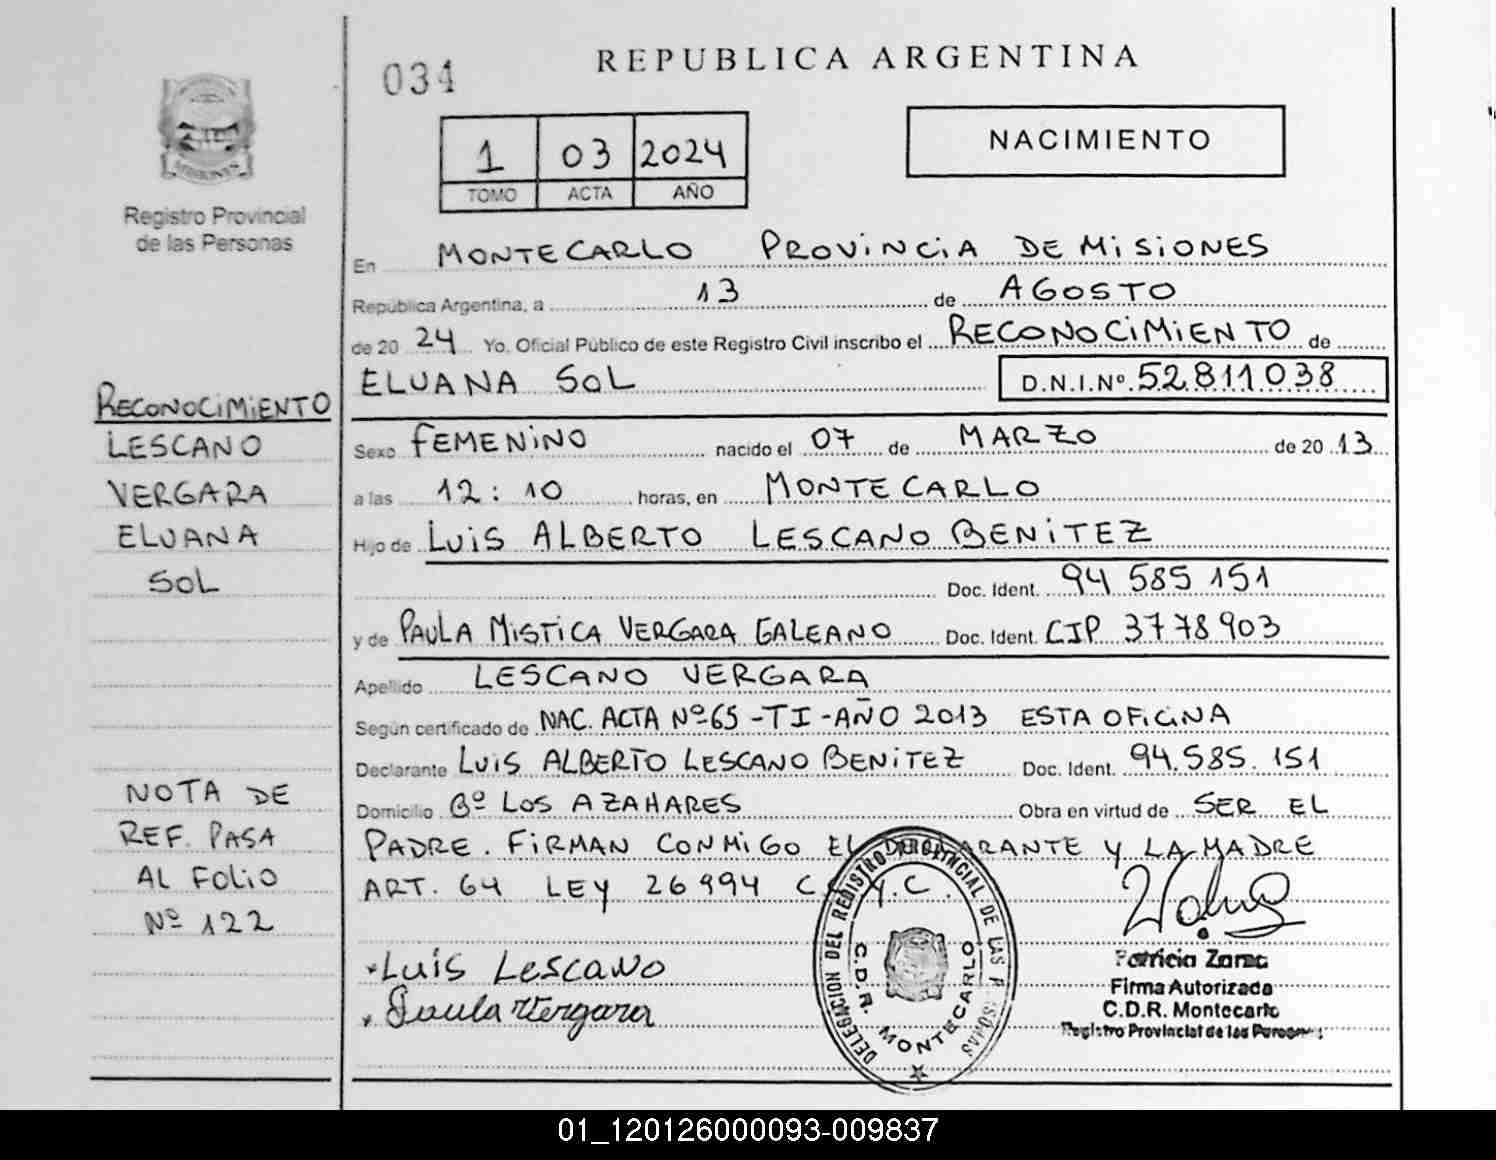 034
REPUBLICA ARGENTINA
1 03 2024
TOMO ACTA AÑO
NACIMIENTO
Registro Provincial
de las Personas
En MONTECARLO PROVINCIA DE MISIONES
República Argentina, a 13 de AGOSTO
de 20 24 Yo, Oficial Público de este Registro Civil inscribo el RECONOCIMIENTO de
ELUANA SOL D.N.I.Nº 52.811.038
Sexo FEMENINO nacido el 07 de MARZO de 20 13
a las 12:10 horas, en MONTECARLO
Hijo de LUIS ALBERTO LESCANO BENITEZ
Doc. Ident. 94 585 151
y de PAULA MISTICA VERGARA GALEANO Doc. Ident. CIP 3778903
Apellido LESCANO VERGARA
Según certificado de NAC. ACTA Nº65-TI-AÑO 2013 ESTA OFICINA
Declarante LUIS ALBERTO LESCANO BENITEZ Doc. Ident. 94.585.151
Domicilio Bº LOS AZAHARES Obra en virtud de SER EL
PADRE. FIRMAN CONMIGO EL DECLARANTE Y LA MADRE
ART. 64 LEY 26994 C.C.Y.C.
Luis Lescano
Paula Vergara
DELEGACION DEL REGISTRO PROVINCIAL DE LAS PERSONAS
C.D.R. MONTECARLO
Patricia Zarac
Firma Autorizada
C.D.R. Montecarlo
Registro Provincial de las Personas
RECONOCIMIENTO
LESCANO
VERGARA
ELUANA
SOL
NOTA DE
REF. PASA
AL FOLIO
Nº 122
01_120126000093-009837